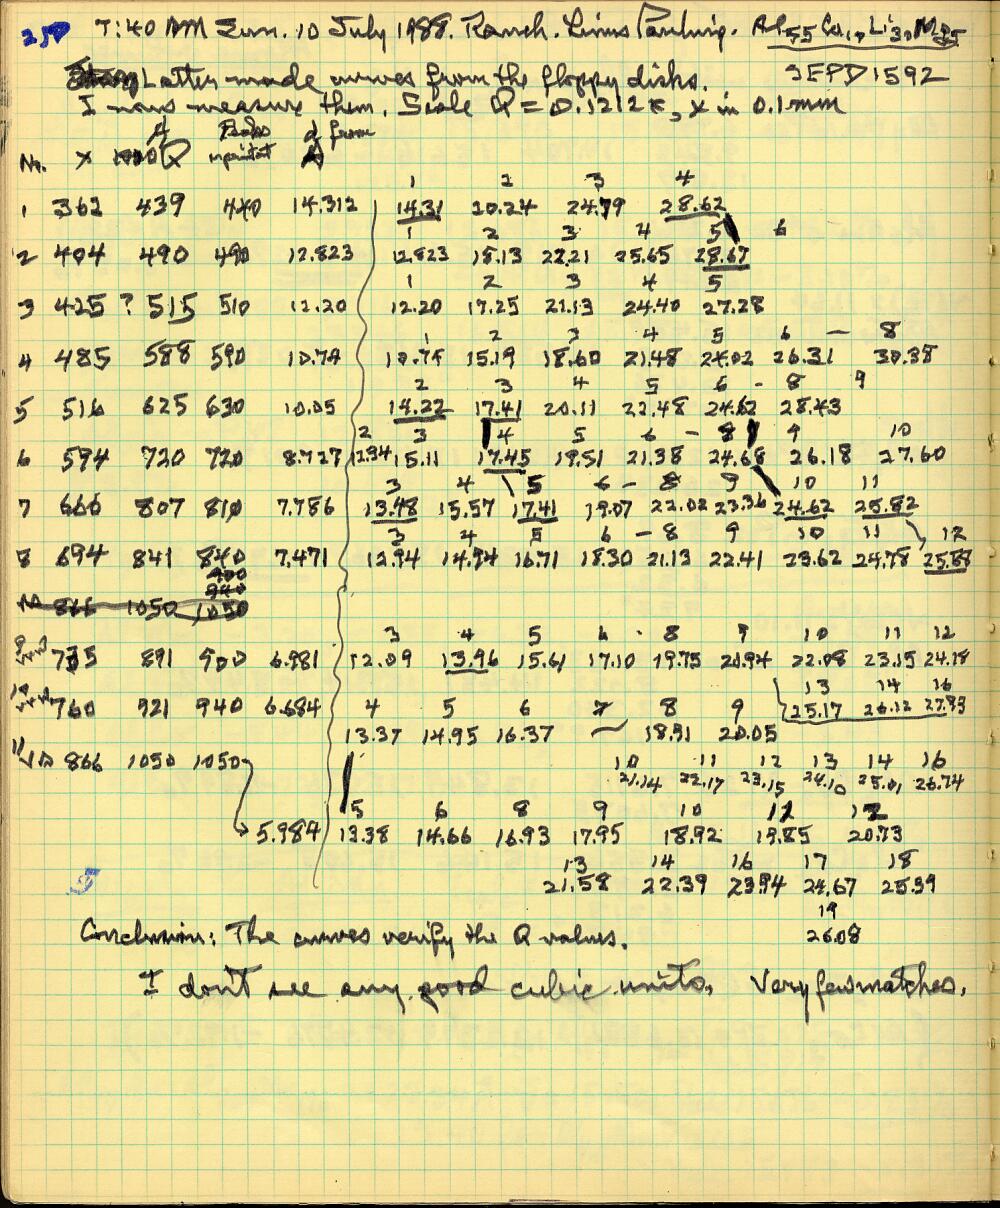 250 7:40 AM Sun. 10 July 1988. Ranch. Linus Pauling. Al55 Cu10 Li30 Mg5
Latter made curves from the floppy disks. SEPD 1592
I now measure them. Scale Q = 0.1212x, x in 0.1 mm
No. x Q Peaks d from
1 2 3 4
1 362 439 440 14.312 14.31 20.24 24.79 28.62
1 2 3 4 5 6
2 404 490 490 12.823 12.823 18.13 22.21 25.65 28.67
1 2 3 4 5
3 425 ? 515 510 12.20 12.20 17.25 21.13 24.40 27.28
1 2 3 4 5 6 — 8
4 485 588 590 10.74 10.74 15.19 18.60 21.48 24.02 26.31 30.38
2 3 4 5 6 - 8 9
5 516 625 630 10.05 14.22 17.41 20.11 22.48 24.62 28.43
2 3 4 5 6 - 8 9 10
6 594 720 720 8.727 12.34 15.11 17.45 19.51 21.38 24.68 26.18 27.60
3 4 5 6 - 8 9 10 11
7 666 807 810 7.786 13.48 15.57 17.41 19.07 22.02 23.36 24.62 25.82
3 4 5 6 - 8 9 10 11 12
8 694 841 840 7.471 12.94 14.94 16.71 18.30 21.13 22.41 23.62 24.78 25.88
900
940
10 866 1050 1050
3 4 5 6 · 8 9 10 11 12
9 735 891 900 6.981 12.09 13.96 15.61 17.10 19.75 20.94 22.08 23.15 24.18
13 14 16
25.17 26.12 27.93
10 760 921 940 6.684 4 5 6 7 8 9
13.37 14.95 16.37 — 18.91 20.05
11 10 866 1050 1050 10 11 12 13 14 16
21.14 22.17 23.15 24.10 25.01 26.74
5 6 8 9 10 11 12
5.984 13.38 14.66 16.93 17.95 18.92 19.85 20.73
13 14 16 17 18
21.58 22.39 23.94 24.67 25.39
19
Conclusion: The curves verify the Q values. 26.08
I don't see any good cubic units. Very few matches.